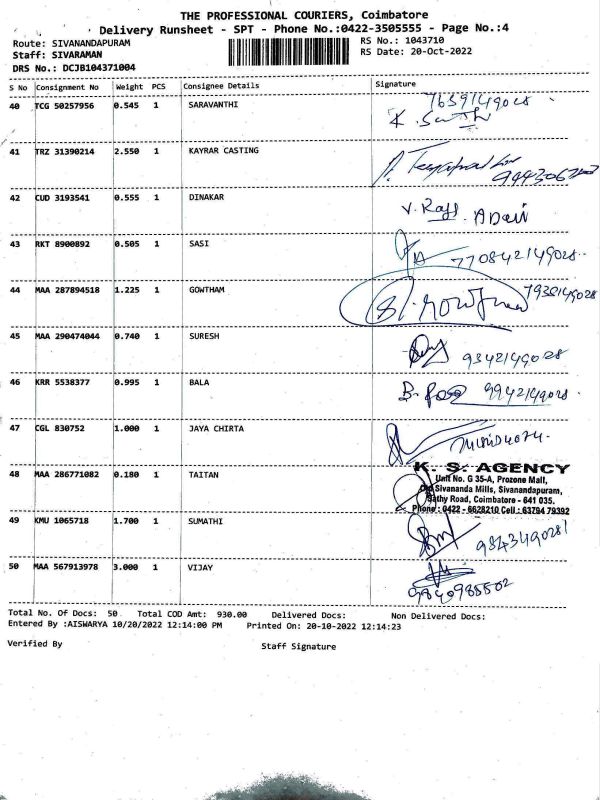 THE PROFESSIONAL COURIERS, Coimbatore
Delivery Runsheet - SPT - Phone No.:0422-3505555 - Page No.:4
Route: SIVANANDAPURAM RS No.: 1043710
Staff: SIVARAMAN RS Date: 20-Oct-2022
DRS No.: DCJB104371004
S No Consignment No Weight PCS Consignee Details Signature
40 TCG 50257956 0.545 1 SARAVANTHI
41 TRZ 31390214 2.550 1 KAYRAR CASTING
42 CUD 3193541 0.555 1 DINAKAR
43 RKT 8900892 0.505 1 SASI
44 MAA 287894518 1.225 1 GOWTHAM
45 MAA 290474044 0.740 1 SURESH
9342149028
46 KRR 5538377 0.995 1 BALA
9942149028
47 CGL 830752 1.000 1 JAYA CHIRTA
48 MAA 286771082 0.180 1 TAITAN
K. S. AGENCY
Unit No. G 35-A, Prozone Mall,
Sivananda Mills, Sivanandapuram,
Sathy Road, Coimbatore - 641 035.
Phone : 0422 - 6628210 Cell : 63794 79392
49 KMU 1065718 1.700 1 SUMATHI
50 MAA 567913978 3.000 1 VIJAY
9840985502
Total No. Of Docs: 50 Total COD Amt: 930.00 Delivered Docs: Non Delivered Docs:
Entered By :AISWARYA 10/20/2022 12:14:00 PM Printed On: 20-10-2022 12:14:23
Verified By Staff Signature